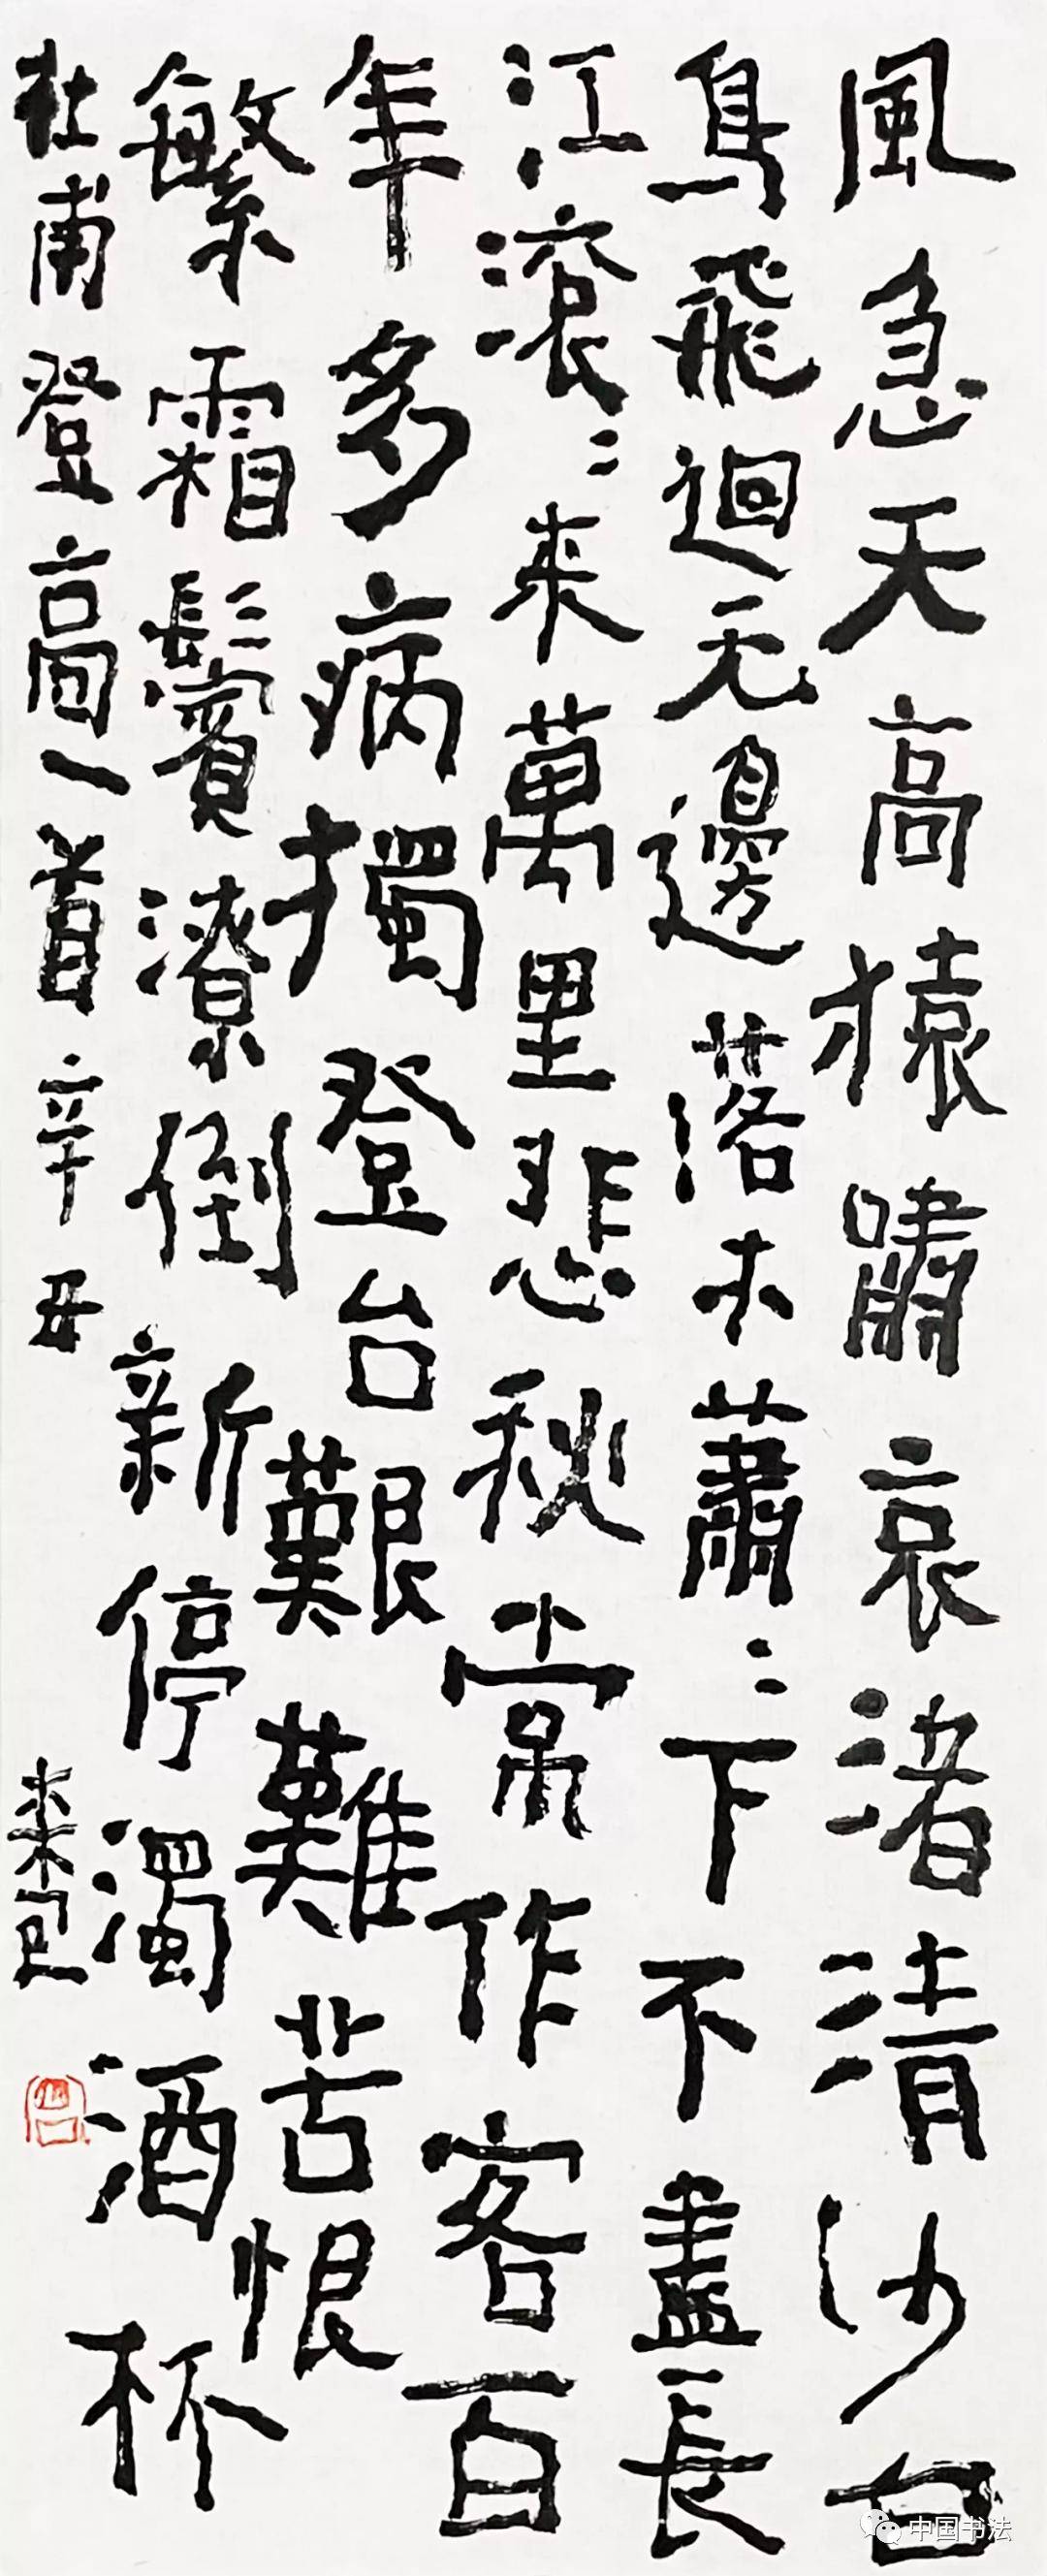 風急天高猿嘯哀渚清沙白
鳥飛迴无邊落木蕭〻下不盡長
江滾〻來萬里悲秋常作客百
年多病獨登台艱難苦恨
繁霜鬢潦倒新停濁酒杯
杜甫登高一首辛丑
中国书法